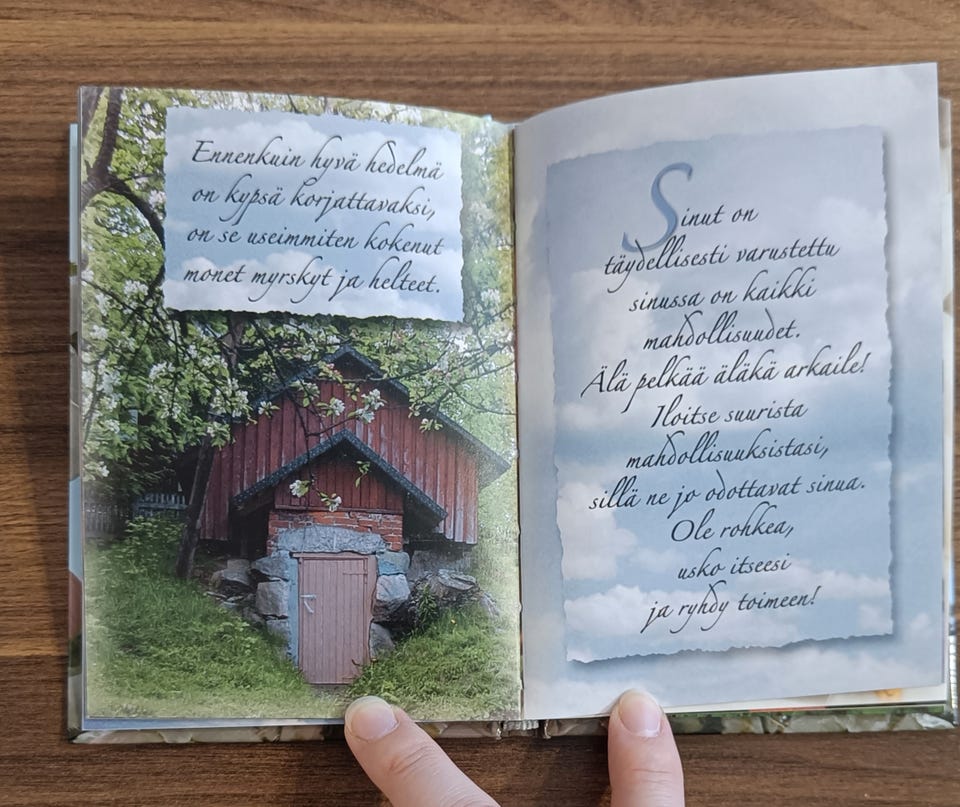 Ennenkuin hyvä hedelmä
on kypsä korjattavaksi,
on se useimmiten kokenut
monet myrskyt ja helteet.
Sinut on
täydellisesti varustettu
sinussa on kaikki
mahdollisuudet.
Älä pelkää äläkä arkaile!
Iloitse suurista
mahdollisuuksistasi,
sillä ne jo odottavat sinua.
Ole rohkea,
usko itseesi
ja ryhdy toimeen!